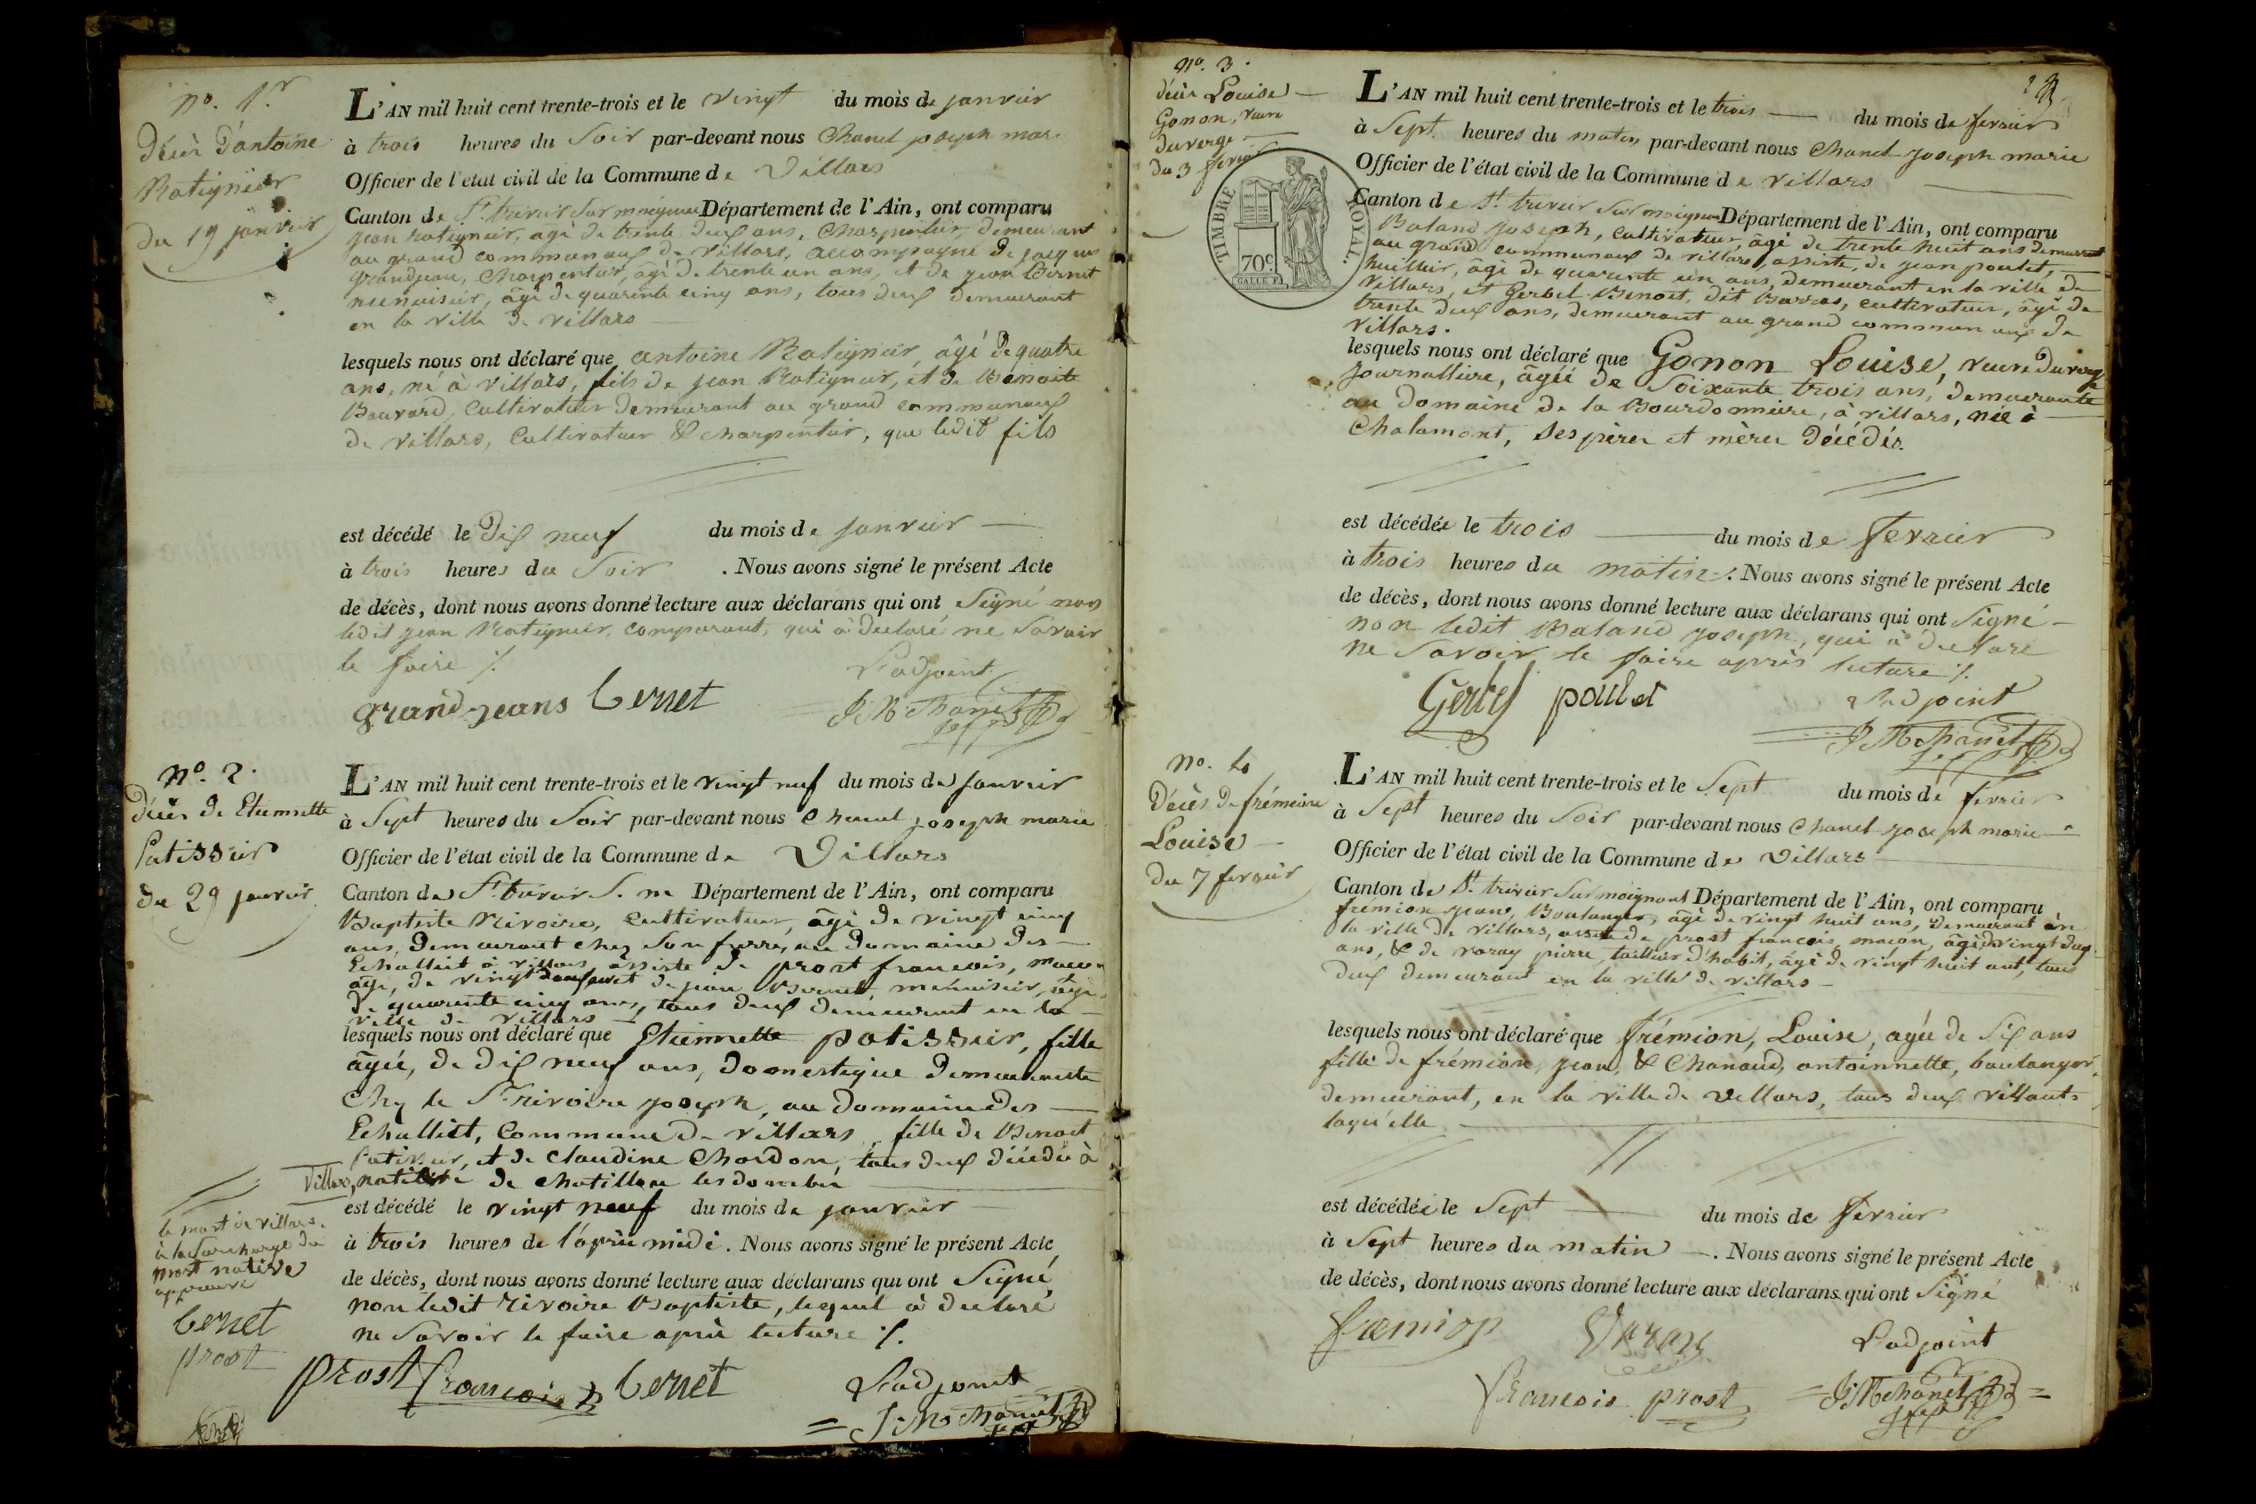 no. 1.r
Décès d'antoine
Ratignier
du 19 janvier
L'AN mil huit cent trente-trois et le vingt du mois de janvier
à trois heures du Soir par-devant nous Chanel joseph mar.
Officier de l'état civil de la Commune de Villars
Canton de St. trivier Sur moignans Département de l'Ain, ont comparu
jean Ratignier, agé de trente deux ans, Charpentier, demeurant
au grand communaux de villars, accompagné de jacques
grandjean, Charpentier, âgé de trente un ans, et de jean Bernet
menuisier, âgé de quarante cinq ans, tous deux demeurant
en la ville de villars
lesquels nous ont déclaré que antoine Ratignier, âgé de quatre
ans, né à villars, fils de jean Ratignier, et de Benoite
Bouvard, Cultivateur demeurant au grand communaux
de villars, Cultivateur & charpentier, que ledit fils
est décédé le dix neuf du mois de janvier
à trois heures du Soir . Nous avons signé le présent Acte
de décès, dont nous avons donné lecture aux déclarans qui ont Signé non
ledit jean Ratignier, comparant, qui à declaré ne Savoir
le faire /.
L'adjoint
grandjeans bernet J. M. Chanel
no. 2.
Décès de Etiennette
Patissier
du 29 janvier
L'AN mil huit cent trente-trois et le vingt neuf du mois de janvier
à Sept heures du Soir par-devant nous Chanel joseph marie
Officier de l'état civil de la Commune de Villars
Canton de St. trivier S. m Département de l'Ain, ont comparu
Baptiste Rivoire, cultivateur, âgé de vingt cinq
ans, demeurant chez Son frere, au domaine des
Echalliet à villars, assisté de prost francois, macon
âgé, de vingt deux ans et de jean Bernet, menuisier, âgé
de quarante cinq ans, tous deux demeurant en la
ville de villars
lesquels nous ont déclaré que Etiennette patissier, fille
âgée, de dix neuf ans, domestique demeurante
Chez le Sr. rivoire joseph, au domaine des
Echalliet, Commune de villars, fille de Benoit
Patissier, et de Claudine Chardon, tous deux décédés à
Villars, native de chatillon les dombes
est décédé le vingt neuf du mois de janvier
à trois heures de l'après midi. Nous avons signé le présent Acte
de décès, dont nous avons donné lecture aux déclarans qui ont Signé
non ledit rivoire Baptiste, lequel à declaré
ne Savoir le faire après lecture /.
le mot de villars.
à la Surcharge du
mot native
approuvé
bernet
prost
prost francois bernet L'adjoint
J. M. Chanel
no. 3.
décès Louise
Gonon, veuve
Duverge
du 3 fevrier
TIMBRE ROYAL.
70c.
L'AN mil huit cent trente-trois et le trois du mois de fevrier
à Sept heures du matin par-devant nous Chanel joseph marie
Officier de l'état civil de la Commune de villars
Canton de St. trivier Sur moignans Département de l'Ain, ont comparu
Baland joseph, cultivateur, âgé de trente huit ans demeurant
au grand communaux de villars, assisté, de jean poulet,
huillier, âgé de quarante un ans, demeurant en la ville de
villars, et Gerbel Benoit, dit Barras, cultivateur, âgé de
trente deux ans, demeurant au grand communaux de
villars.
lesquels nous ont déclaré que Gonon Louise, veuve Duverge
journalliere, âgée de Soixante trois ans, demeurante
au domaine de la Bourdonniere, à villars, née à
Chalamont, Ses pères et mères décédés.
est décédée le trois du mois de fevrier
à trois heures du matin . Nous avons signé le présent Acte
de décès, dont nous avons donné lecture aux déclarans qui ont Signé
non ledit Baland joseph, qui à declaré
ne Savoir le faire après lecture /.
Gerbel poulet L'adjoint
J M Chanel
no. 4
Décès de frémion
Louise
du 7 fevrier
L'AN mil huit cent trente-trois et le Sept du mois de fevrier
à Sept heures du Soir par-devant nous Chanel joseph marie
Officier de l'état civil de la Commune de Villars
Canton de St. trivier Sur moignans Département de l'Ain, ont comparu
frémion jean, Boulanger, âgé de vingt huit ans, demeurant en
la ville de villars, assisté de prost francois macon, âgé de vingt deux
ans, & de varay pierre, tailleur d'habit, âgé de vingt huit ans, tous
deux demeurant en la ville de villars
lesquels nous ont déclaré que frémion, Louise, agée de Six ans
fille de frémion, jean, & Chanaud, antoinnette, boulanger,
demeurant, en la ville de villars, tous deux vivants
laqu'elle
est décédée le Sept du mois de fevrier
à Sept heures du matin . Nous avons signé le présent Acte
de décès, dont nous avons donné lecture aux déclarans qui ont Signé
fremion Varay L'adjoint
francois prost J. M Chanel